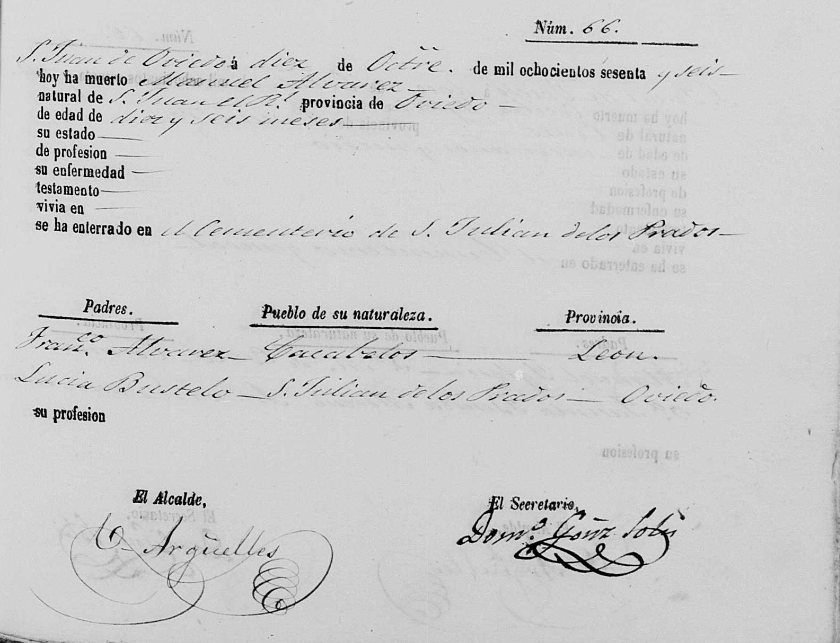 Núm. 66.
S. Juan de Oviedo á diez de Octre. de mil ochocientos sesenta y seis
hoy ha muerto Manuel Alvarez
natural de S. Juan el Rl. provincia de Oviedo
de edad de diez y seis meses
su estado
de profesion
su enfermedad
testamento
vivia en
se ha enterrado en el Cementerio de S. Julian de los Prados
Padres. Pueblo de su naturaleza. Provincia.
Franco. Alvarez Cacabelos Leon.
Lucia Bustelo S. Julian de los Prados Oviedo.
su profesion
El Alcalde, El Secretario,
Argüelles Domo. Gonz